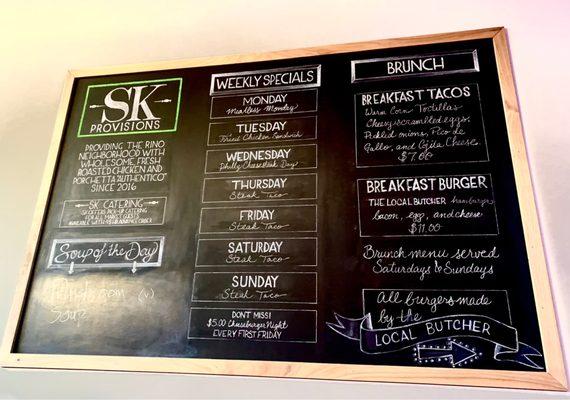 SK
PROVISIONS
PROVIDING THE RINO
NEIGHBORHOOD WITH
WHOLESOME, FRESH
ROASTED CHICKEN AND
PORCHETTA "AUTHENTICO"
SINCE 2016
SK CATERING
SK OFFERS PICK-UP CATERING
FOR ALL MARKET GUESTS
AVAILABLE WITH
Soup of the Day
(v)
Soup
WEEKLY SPECIALS
MONDAY
Meatless Monday
TUESDAY
Fried Chicken Sandwich
WEDNESDAY
Philly Cheesesteak Day
THURSDAY
Steak Taco
FRIDAY
Steak Taco
SATURDAY
Steak Taco
SUNDAY
Steak Taco
DON'T MISS!
$5.00 Cheeseburger Night
EVERY FIRST FRIDAY
BRUNCH
BREAKFAST TACOS
Warm Corn Tortillas
Cheesy scrambled eggs,
Pickled onions, Pico de
Gallo, and Cojita Cheese.
$7.00
BREAKFAST BURGER
THE LOCAL BUTCHER hamburger
bacon, egg, and cheese
$11.00
Brunch menu served
Saturdays & Sundays
All burgers made
by the
LOCAL BUTCHER